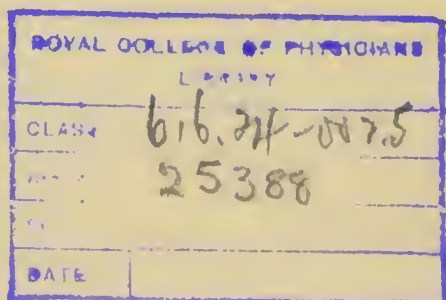 ROYAL COLLEGE OF PHYSICIANS
LIBRARY
CLASS 616.24-007.5
25388
DATE